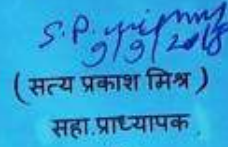 S.P.
9/9/2018
( सत्य प्रकाश मिश्र )
सहा.प्राध्यापक